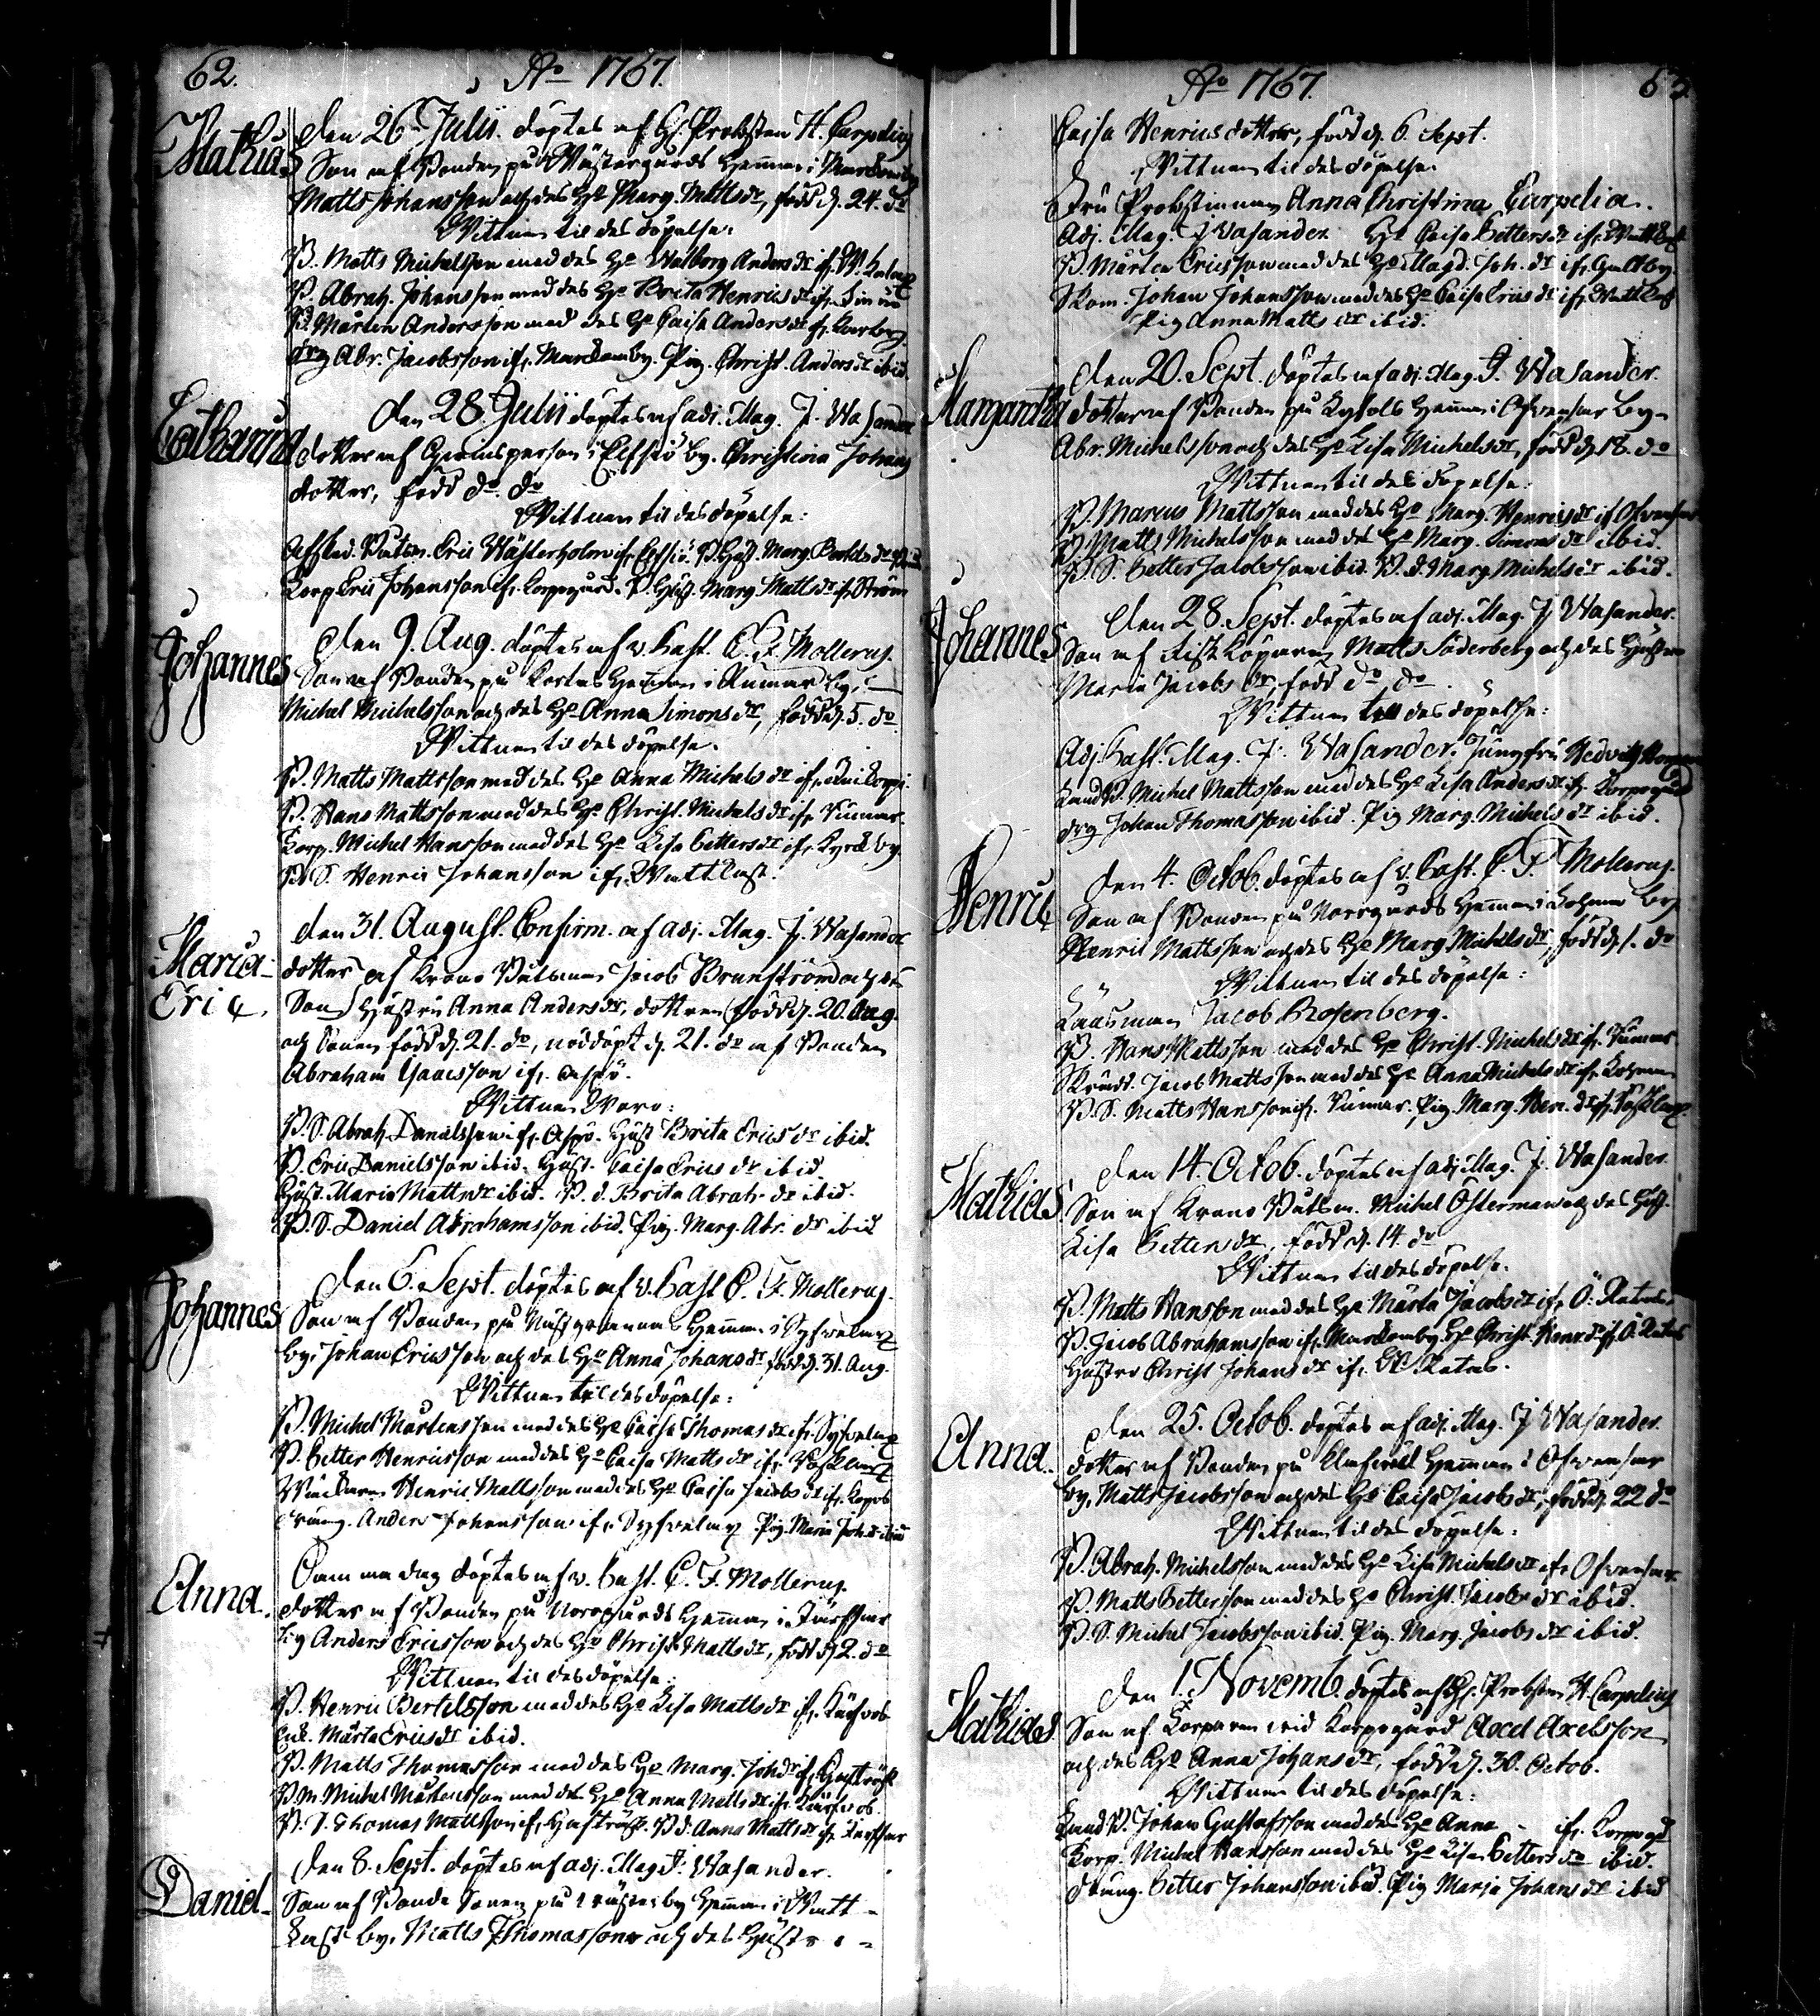 62.
Ao 1767.
Mathias
Den 26 Julii. döptes af H. Probsten H. Carpelius
Son af Bonden på Wästergårds Hemman i
Matts Johansson och des H:o Marg. Matts dr, född d. 24. do
Wittnen til des döpelse:
B. Matts Michelsson med des H:o Walborg Anders dr ifr.
B. Abrah. Johansson med des H:o Brita Henrics dr ifr.
B. Mårten Andersson med des H:o Caisa Anders dr ifr.
drg Abr. Jacobsson ifr. Marckomby. Pig. Christ. Anders dr ibid.
Catharina
Den 28 Julii döptes af adj. Mag. J. Wasander
dotter af Qwinsperson i by. Christina Johans
dotter, född do. do
Wittnen til des döpelse:
Afsked. Båtsm. Eric Wästerholm ifr. B. Hust. Marg. dr
Korp. Eric Johansson ifr. Korpogård. B. Hust. Marg. Matts dr ifr.
Johannes
Den 9. Aug. döptes af v. Past. C. F. Mollerus.
Son af Bonden på Hemman i Rumar by,
Michel Michelsson och des H:o Anna Simons dr, född d. 5. do
Wittnen til des döpelse.
B. Matts Mattsson med des H:o Anna Michels dr ifr.
B. Hans Mattsson med des H:o Christ. Michels dr ifr. Rumar.
Korp. Michel Hansson med des H:o Lisa Petters dr ifr. Kyrckby
B. S. Henric Johansson ifr. Wattkast.
Maria
Eric.
den 31. August. Confirm. af adj. Mag. J. Wasander
dotter af Krono Båtsman Jacob Brunström och
Son Hustru Anna Anders dr, dottren född d. 20. Aug.
och Sonen född d. 21. do, nöddöpt d. 21. do af Bonden
Abraham Isacsson ifr. Aspö.
Wittnen Woro:
B. S. Abrah. Danielsson ifr. Aspö. Hust. Brita Erics dr ibid.
B. Eric Danielsson ibid. Hust. Caisa Erics dr ibid.
Hust. Maria Matts dr ibid. B. d. Brita Abrah. dr ibid.
B. S. Daniel Abrahamsson ibid. Pig. Marg. Abr. dr ibid
Johannes
Den 6. Sept. döptes af v. Past C. F. Mollerus.
Son af Bonden på Hemman i
by, Johan Ericsson och des H:o Anna Johans dr född d. 31. Aug.
Wittnen til des döpelse:
B. Michel Mårtensson med des H:o Caisa Thomas dr ifr.
B. Petter Henricsson med des H:o Caisa Matts dr ifr.
Henric Mattsson med des H:o Caisa Jacobs dr ifr.
dräng. Anders Johansson ifr. Pig. Maria Joh. dr ibid
Anna.
Samma dag döptes af v. Past. C. F. Mollerus.
dotter af Bonden på Norrgårds Hemman i
by Anders Ericsson och des H:o Christ. Matts dr, född d. 2. do
Wittnen til des döpelse:
B. Henric Bertelsson med des H:o Lisa Matts dr ifr.
Enk. Märta Erics dr ibid.
B. Matts Thomasson med des H:o Marg. Joh dr ifr.
B. m. Michel Mårtensson med des H:o Anna Matts dr ifr.
B. S. Thomas Mattsson ifr. B d. Anna Matts dr ifr.
Daniel
Den 8. Sept. döptes af adj. Mag J. Wasander.
Son af Bonde Sonen på Hemman i Watt-
kast by. Matts Thomasson och des Hustr
Ao 1767.
63.
Caisa Henrics dotter, född d. 6. Sept.
Wittnen til des döpelse.
Fru Probstinnan Anna Christina Carpelia.
Adj. Mag. J Wasander H:o Caisa Petters dr ifr. Wattkast
B. Mårten Ericsson med des H:o Magd. Joh. dr ifr.
Skom. Johan Johansson med des H:o Caisa Erics dr ifr. Wattkast
Pig Anna Matts dr ibid.
Margaretha
Den 20. Sept. döptes af adj. Mag. J. Wasander.
dotter af Bonden på Hemman i by
Abr. Michelsson och des H:o Lisa Michels dr, född d. 18. do
Wittnen til des döpelse:
B. Marcus Mattsson med des H:o Marg. Henrics dr ifr.
B Matts Michelsson med des H:o Marg. Simons dr ibid.
B. S. Petter Jacobsson ibid. B. d. Marg. Michels dr ibid.
Johannes
Den 28. Sept. döptes af adj. Mag. J Wasander.
Son af Fisk Köparen Matts Söderberg och des Hustru
Maria Jacobs dr, född do do
Wittnen till des döpelse:
Adj. Past. Mag. J. Wasander. Jungfru Hedvig
Land B. Michel Mattsson med des H:o Lisa Anders dr ifr. Korpogård
drg Johan Thomasson ibid. Pig Marg. Michels dr ibid.
Henric
Den 4. Octob. döptes af v. Past. C. F. Mollerus.
Son af Bonden på Norrgårds Hemman i by
Henric Mattsson och des H:o Marg Michels dr, född d. 1. do
Wittnen til des döpelse:
Länsman Jacob Rosenberg.
B. Hans Mattsson med des H:o Christ. Michels dr ifr. Rumar
Skrädd. Jacob Mattsson med des H:o Anna Michels dr ifr.
B. S. Matts Hansson ifr. Rumar. Pig Marg. Hen. dr ifr.
Mathias
Den 14. Octob. döptes af adj. Mag. J. Wasander.
Son af Krono Båtsm. Michel Österman och des Hust.
Lisa Petters dr, född d. 14. do
Wittnen til des döpelse.
B. Matts Hansson med des H:o Märta Jacobs dr ifr. Ö. Retais.
B. Jacob Abrahamsson ifr. Marckomby H:o Christ. Henr dr ifr. Ö. Retais
Hustru Christ Johans dr ifr. W. Retais.
Anna.
Den 25. Octob. döptes af adj. Mag. J Wasander.
dotter af Bonden på Hemman i
by, Matts Jacobsson och des H:o Caisa Jacobs dr, född d. 22 do
Wittnen til des döpelse:
B. Abrah. Michelsson med des H:o Lisa Michels dr ifr.
B. Matts Pettersson med des H:o Christ. Jacobs dr ibid.
B. S. Michel Jacobsson ibid. Pig. Marg. Jacobs dr ibid.
Mathias
Den 1. Novemb. döptes af H. Probsten H. Carpelius
Son af Torparen wid Korpogård Axel Axelsson
och des H:o Anna Johans dr, född d. 30. Octob.
Wittnen til des döpelse:
Land B. Johan Gustafsson med des H:o Anna - ifr. Korpogd
Korp. Michel Hansson med des H:o Lisa Petters dr ibid.
dräng. Petter Johansson ibid. Pig Marja Johans dr ibid